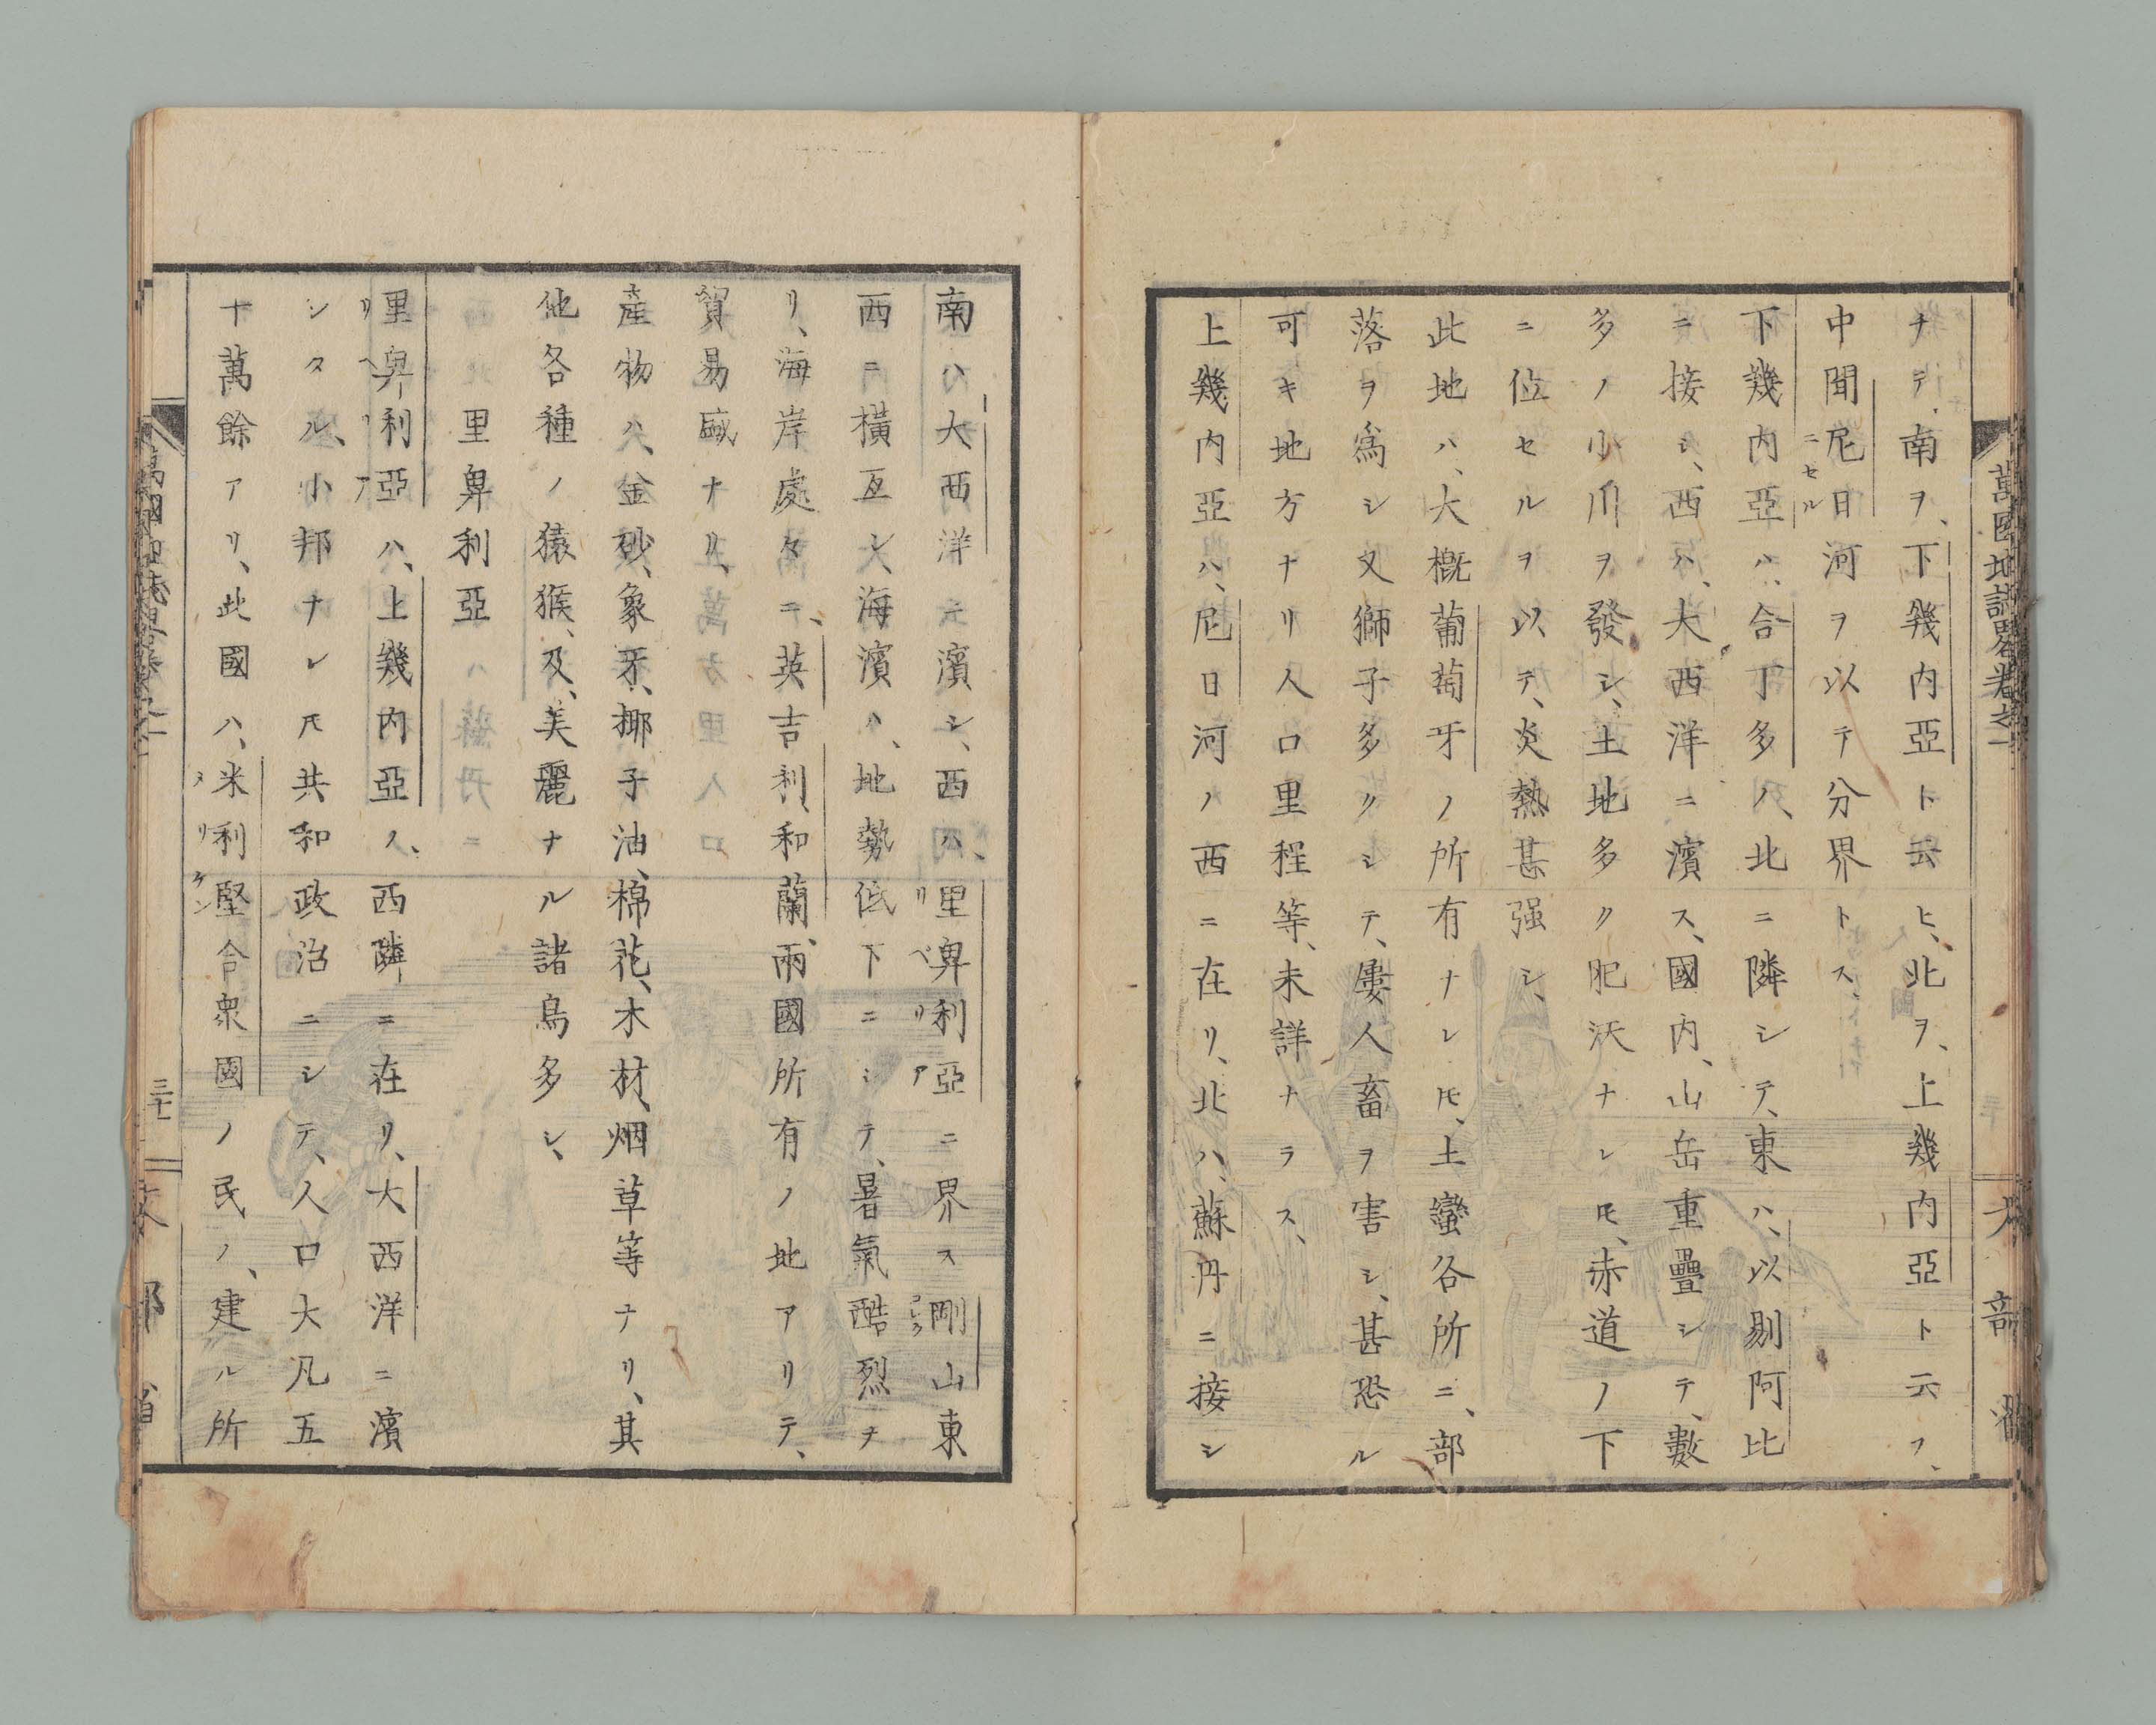 ナテ、南ヲ、下幾内亞ト云ヒ、北ヲ、上幾内亞ト云フ、
中間尼日河ヲ以テ分界トス、
ニセル
下幾内亞ハ、合丁多ノ、北ニ隣シテ、東ハ、以剔阿比
ニ接シ、西ハ、大西洋ニ濱ス、國内、山岳重疊シテ、數
多ノ小川ヲ發シ、土地多ク肥沃ナレ𪜈、赤道ノ下
ニ位セルヲ以テ、炎熱甚强シ、
此地ハ、大概葡萄牙ノ所有ナレ𪜈、土蠻各所ニ、部
落ヲ爲シ又獅子多クシテ、屢人畜ヲ害シ、甚恐ル
可キ地方ナリ人口里程等、未詳ナラス、
上幾内亞ハ、尼日河ノ西ニ在リ、北ハ、蘇丹ニ接シ
萬國地誌畧卷之二
文部省
南ハ大西洋ニ濱シ、西ハ、里卑利亞ニ界ス剛山東
リベリア
コンク
西ニ橫亙シ、海濱ハ、地勢低下ニシテ、暑氣酷烈ナ
リ、海岸處々ニ、英吉利、和蘭、兩國所有ノ地アリテ、
貿易盛ナリ、
産物ハ、金砂、象牙、椰子油、棉花、木材、烟草等ナリ、其
他各種ノ猿猴、及、美麗ナル諸鳥多シ、
里卑利亞
里卑利亞ハ、上幾内亞ノ、西隣ニ在リ、大西洋ニ濱
リヘリア
シタル、小邦ナレ𪜈共和政治ニシテ、人口大凡五
十萬餘アリ、此國ハ、米利堅合衆國ノ民ノ、建ル所
メリケン
萬國地誌畧卷之二
三十一
文部省